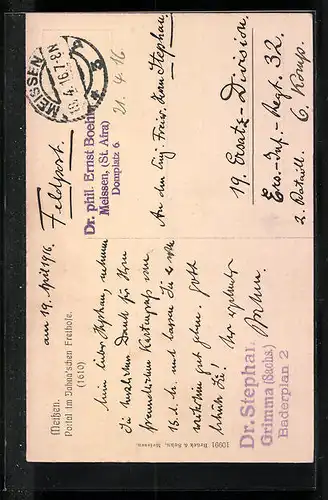 Meißen.
Portal im Dahan'schen Freihofe.
(1610)
am 19. April 1916.
Mein lieber Stephan, nehmen
Sie herzlichen Dank für Ihren
freundlichen Kartengruß vom
16. d. M. und lassen Sie es sich
weiterhin gut gehen. Gott
schütze Sie!
Ihr ergebener
Böhm.
10991 Brück & Sohn, Meissen.
Feldpost.
MEISSEN
Dr. phil. Ernst Boehm
Meissen, (St. Afra)
Domplatz 6
21. 4. 16
An den Einj. Freiw. Herrn Stephan.
19. Ersatz-Division.
Ers.-Inf.-Regt. 32.
2. Bataill. 6. Komp.
Dr. Stephan
Grimma (Sachs.)
Baderplan 2